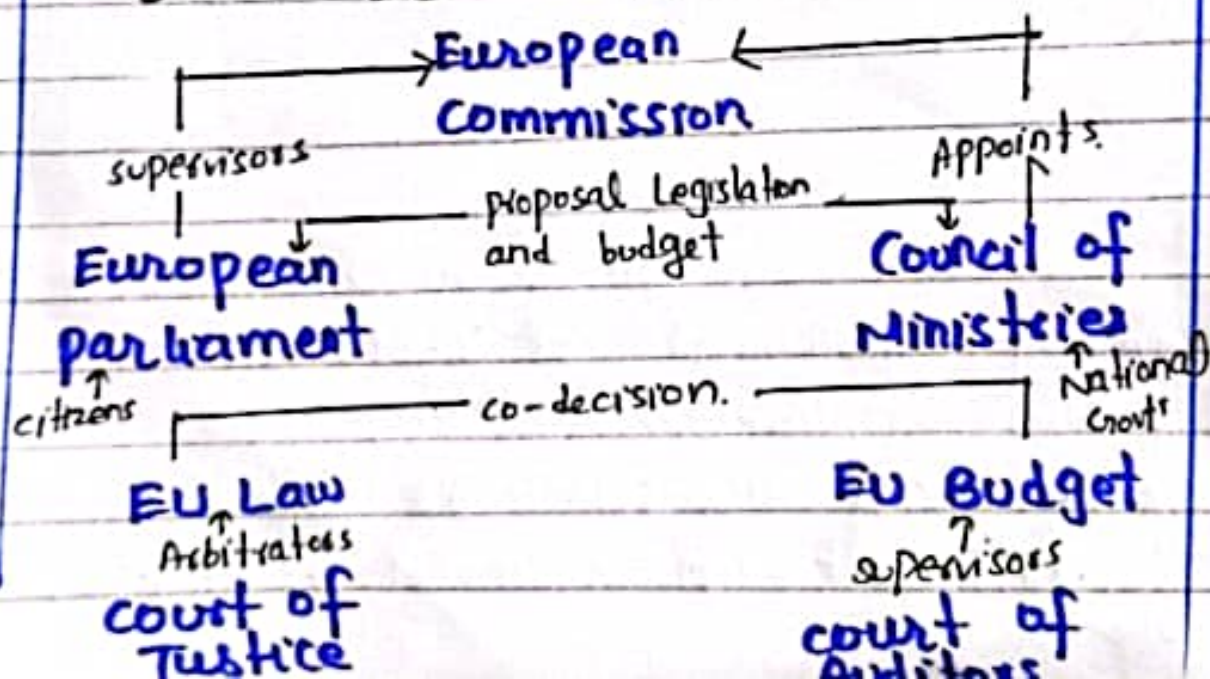 European
Commission
supervisors
Appoints.
proposal Legislation
and budget
European
parliament
Council of
Ministries
citizens
National
Govts
co-decision.
EU Law
EU Budget
Arbitrators
supervisors
court of
Justice
court of
Auditors